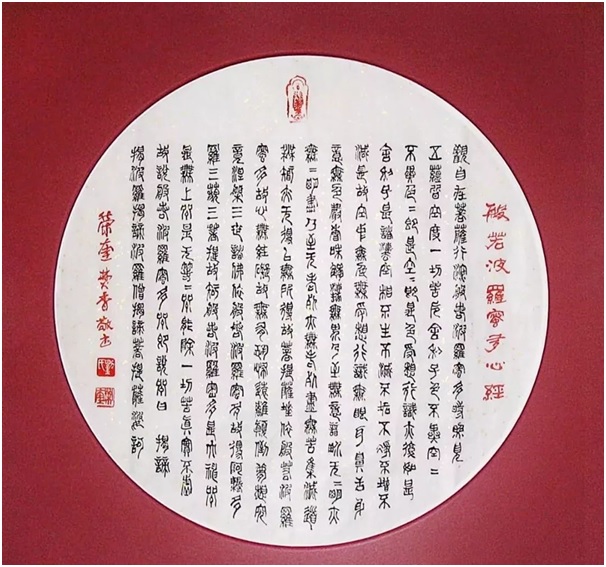 般若波羅蜜多心經
觀自在菩薩行深般若波羅蜜多時照見
五蘊皆空度一切苦厄舍利子色不異空二
不異色二即是空二即是色受想行識亦復如是
舍利子是諸法空相不生不滅不垢不淨不增不
減是故空中無色無受想行識無眼耳鼻舌身
意無色聲香味觸法無眼界乃至無意識界无二明亦
無二明盡乃至无老死亦無老死盡無苦集滅道
無智亦无得以無所得故菩提薩埵依般若波羅
蜜多故心無罣礙故無有恐怖遠離顛倒夢想究
竟涅槃三世諸佛依般若波羅蜜多故得阿耨多
羅三藐三菩提故知般若波羅蜜多是大神咒
是無上咒是无等二咒能除一切苦真實不虛
故說般若波羅蜜多咒即說咒曰 揭諦
揭諦波羅揭諦波羅僧揭諦菩提薩婆訶
榮奎焚香敬書